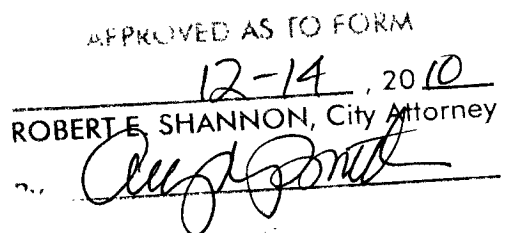 APPROVED AS TO FORM
12-14, 20 10
ROBERT E. SHANNON, City Attorney